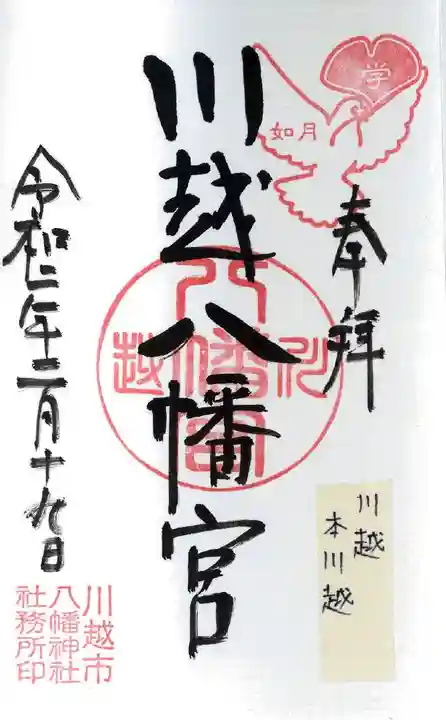 学
如月
奉拝
川越八幡宮
川越
八幡宮
令和二年二月十九日
川越市
八幡神社
社務所印
川越
本川越